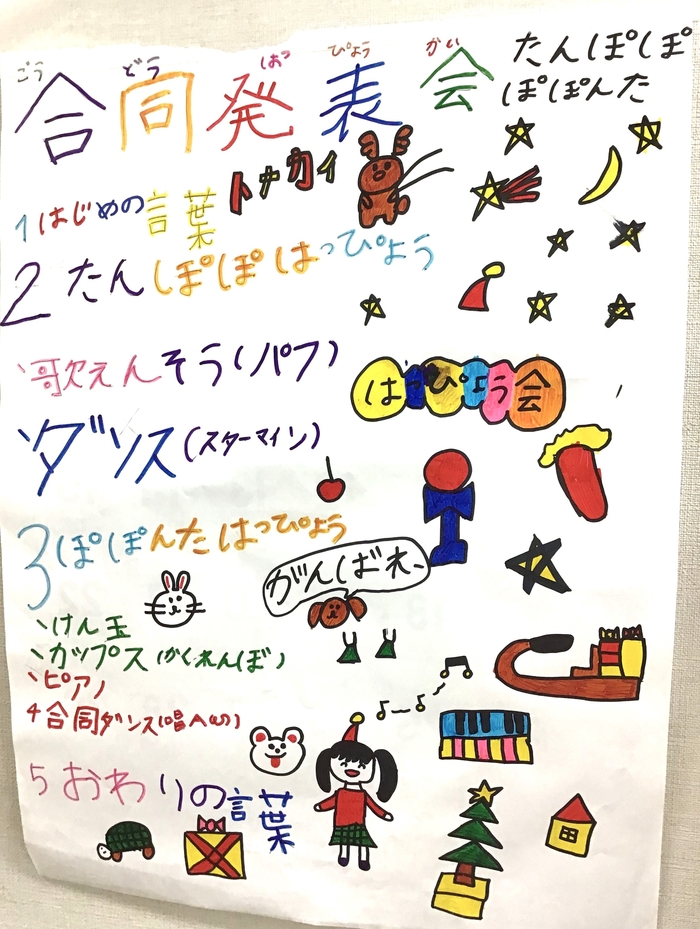 ごう どう はっ ぴょう かい
合同発表会
たんぽぽ
ぽぽんた
トナカイ
1はじめの言葉
2たんぽぽはっぴょう
、歌えんそう(パフ)
はっぴょう会
、ダンス(スターマイン)
3ぽぽんたはっぴょう
がんばれ、
、けん玉
、カップス(かくれんぼ)
、ピアノ
4合同ダンス(唱Aの)
5おわりの言葉